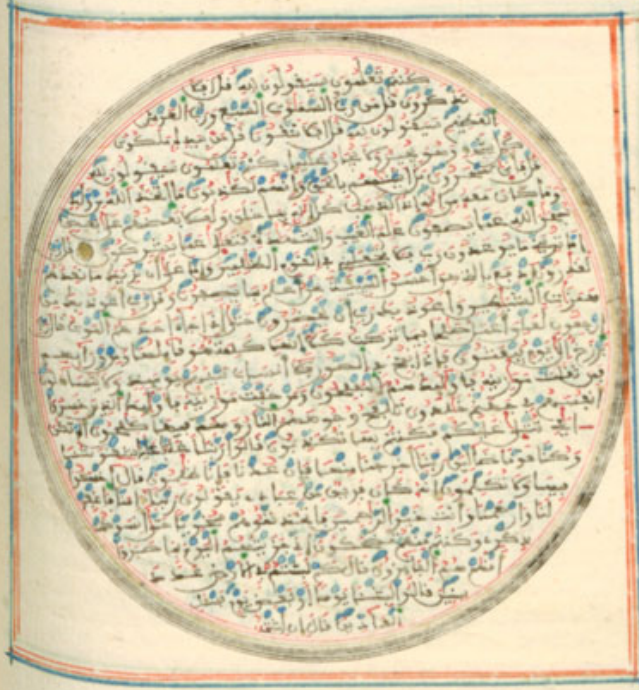 كنتم تعلمون سيقولون لله قل أفلا
تذكرون قل من رب السموت السبع ورب العرش
العظيم سيقولون لله قل أفلا تتقون قل من بيده ملكوت
كل شيء وهو يجير ولا يجار عليه إن كنتم تعلمون سيقولون لله
قل فأنى تسحرون بل أتينهم بالحق وإنهم لكذبون ما اتخذ الله من ولد
وما كان معه من إله إذا لذهب كل إله بما خلق ولعلا بعضهم على بعض
سبحن الله عما يصفون علم الغيب والشهدة فتعلى عما يشركون قل رب
إما تريني ما يوعدون رب فلا تجعلني في القوم الظلمين وإنا على أن نريك ما نعدهم
لقدرون ادفع بالتي هي أحسن السيئة نحن أعلم بما يصفون وقل رب أعوذ بك من
همزت الشيطين وأعوذ بك رب أن يحضرون حتى إذا جاء احدهم الموت قال رب
ارجعون لعلي أعمل صلحا فيما تركت كلا إنها كلمة هو قائلها ومن ورائهم
برزخ إلى يوم يبعثون فإذا نفخ في الصور فلا أنساب بينهم يومئذ ولا يتساءلون
فمن ثقلت موزينه فأولئك هم المفلحون ومن خفت موزينه فأولئك الذين خسروا
أنفسهم في جهنم خلدون تلفح وجوههم النار وهم فيها كلحون ألم تكن
ءايتي تتلى عليكم فكنتم بها تكذبون قالوا ربنا غلبت علينا شقوتنا
وكنا قوما ضالين ربنا أخرجنا منها فإن عدنا فإنا ظلمون قال اخسئوا
فيها ولا تكلمون إنه كان فريق من عبادي يقولون ربنا ءامنا فاغفر
لنا وارحمنا وأنت خير الرحمين فاتخذتموهم سخريا حتى أنسوكم
ذكري وكنتم منهم تضحكون إني جزيتهم اليوم بما صبروا
أنهم هم الفائزون قال كم لبثتم في الأرض عدد
سنين قالوا لبثنا يوما أو بعض يوم فسئل
العادين قال إن لبثتم